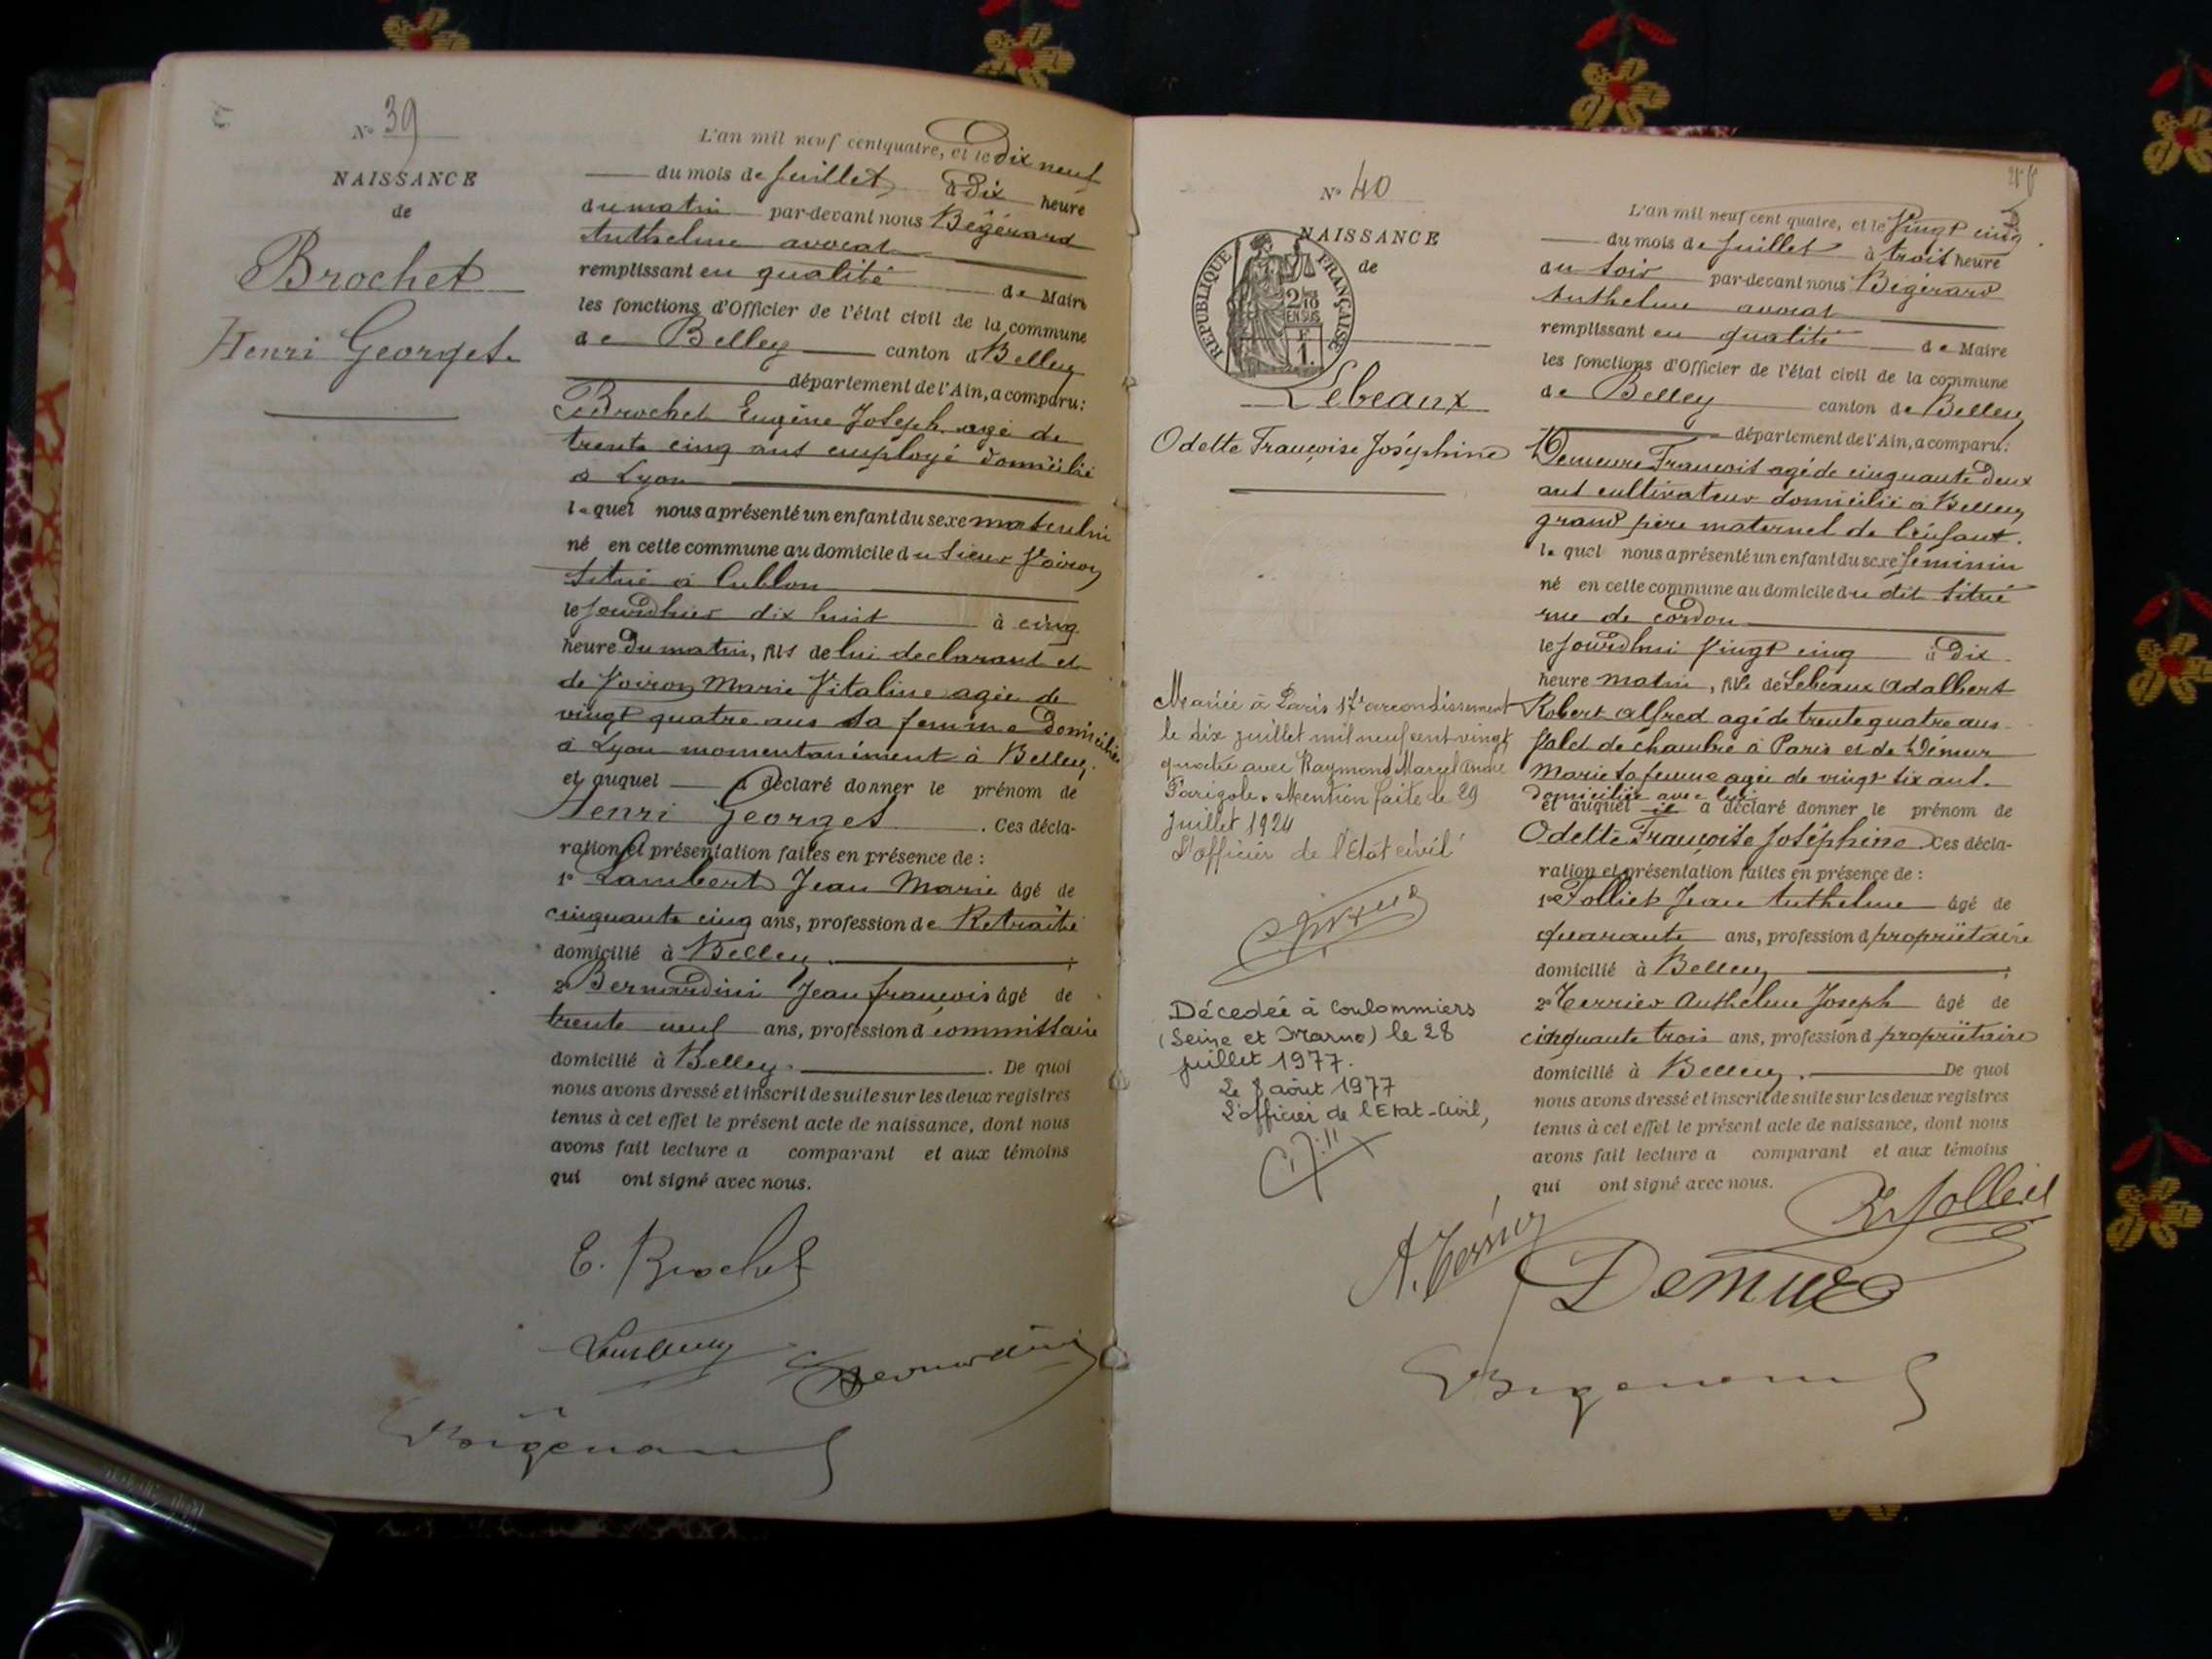 N° 39
NAISSANCE
de
Brochet
Henri Georges
L'an mil neuf cent quatre, et le Dix neuf
du mois de juillet à Dix heure
du matin par-devant nous Bégérard
Anthelme avocat
remplissant en qualité de Maire
les fonctions d'Officier de l'état civil de la commune
de Belley canton d Belley
département de l'Ain, a comparu:
Brochet Eugène Joseph agé de
trente cinq ans employé domicilié
à Lyon
lequel nous a présenté un enfant du sexe masculin
né en cette commune au domicile du sieur Voiron
situé à
le jourdhier dix huit à cinq
heure Du matin, fils de lui declarant et
de Voiron Marie Vitaline agée de
vingt quatre ans sa femme Domiciliée
à Lyon momentanément à Belley.
et auquel a déclaré donner le prénom de
Henri Georges. Ces décla-
ration et présentation faites en présence de :
1° Lambert Jean Marie âgé de
cinquante cinq ans, profession de Retraité
domicilié à Belley ;
2° Bernardini Jean françois âgé de
trente neuf ans, profession d commissaire
domicilié à Belley. De quoi
nous avons dressé et inscrit de suite sur les deux registres
tenus à cet effet le présent acte de naissance, dont nous
avons fait lecture a comparant et aux témoins
qui ont signé avec nous.
E. Brochet
Bernardini
N° 40
NAISSANCE
de
REPUBLIQUE FRANÇAISE
2/10
EN SUS
F
1.
Lebeaux
Odette Françoise Joséphine
Mariée à Paris 17e arrondissement
le dix juillet mil neuf cent vingt
quatre avec Raymond Marcel André
Farigole. Mention faite le 29
Juillet 1924
L'officier de l'Etat civil
Décedée à Coulommiers
(Seine et Marne) le 28
juillet 1977.
Le 8 août 1977
L'officier de l'Etat-Civil,
L'an mil neuf cent quatre, et le Vingt cinq
du mois de juillet à trois heure
du soir par-devant nous Bégérard
Anthelme avocat
remplissant en qualité de Maire
les fonctions d'Officier de l'état civil de la commune
de Belley canton de Belley
département de l'Ain, a comparu:
Demeure François agé de cinquante deux
ans cultivateur domicilié à Belley
grand père maternel de l'enfant.
lequel nous a présenté un enfant du sexe féminin
né en cette commune au domicile du dit situé
rue de cordon
le jourdhui Vingt cinq à Dix
heure matin, fille de Lebeaux Adalbert
Robert Alfred agé de trente quatre ans
Valet de chambre à Paris et de Démeur
Marie sa femme agée de vingt six ans.
domiciliée avec lui
et auquel il a déclaré donner le prénom de
Odette Françoise Joséphine. Ces décla-
ration et présentation faites en présence de :
1° Folliet Jean Anthelme âgé de
quarante ans, profession d propriétaire
domicilié à Belley ;
2° Terrier Anthelme Joseph âgé de
cinquante trois ans, profession d propriétaire
domicilié à Belley. De quoi
nous avons dressé et inscrit de suite sur les deux registres
tenus à cet effet le présent acte de naissance, dont nous
avons fait lecture a comparant et aux témoins
qui ont signé avec nous.
Folliet
A. Terrier
Demure